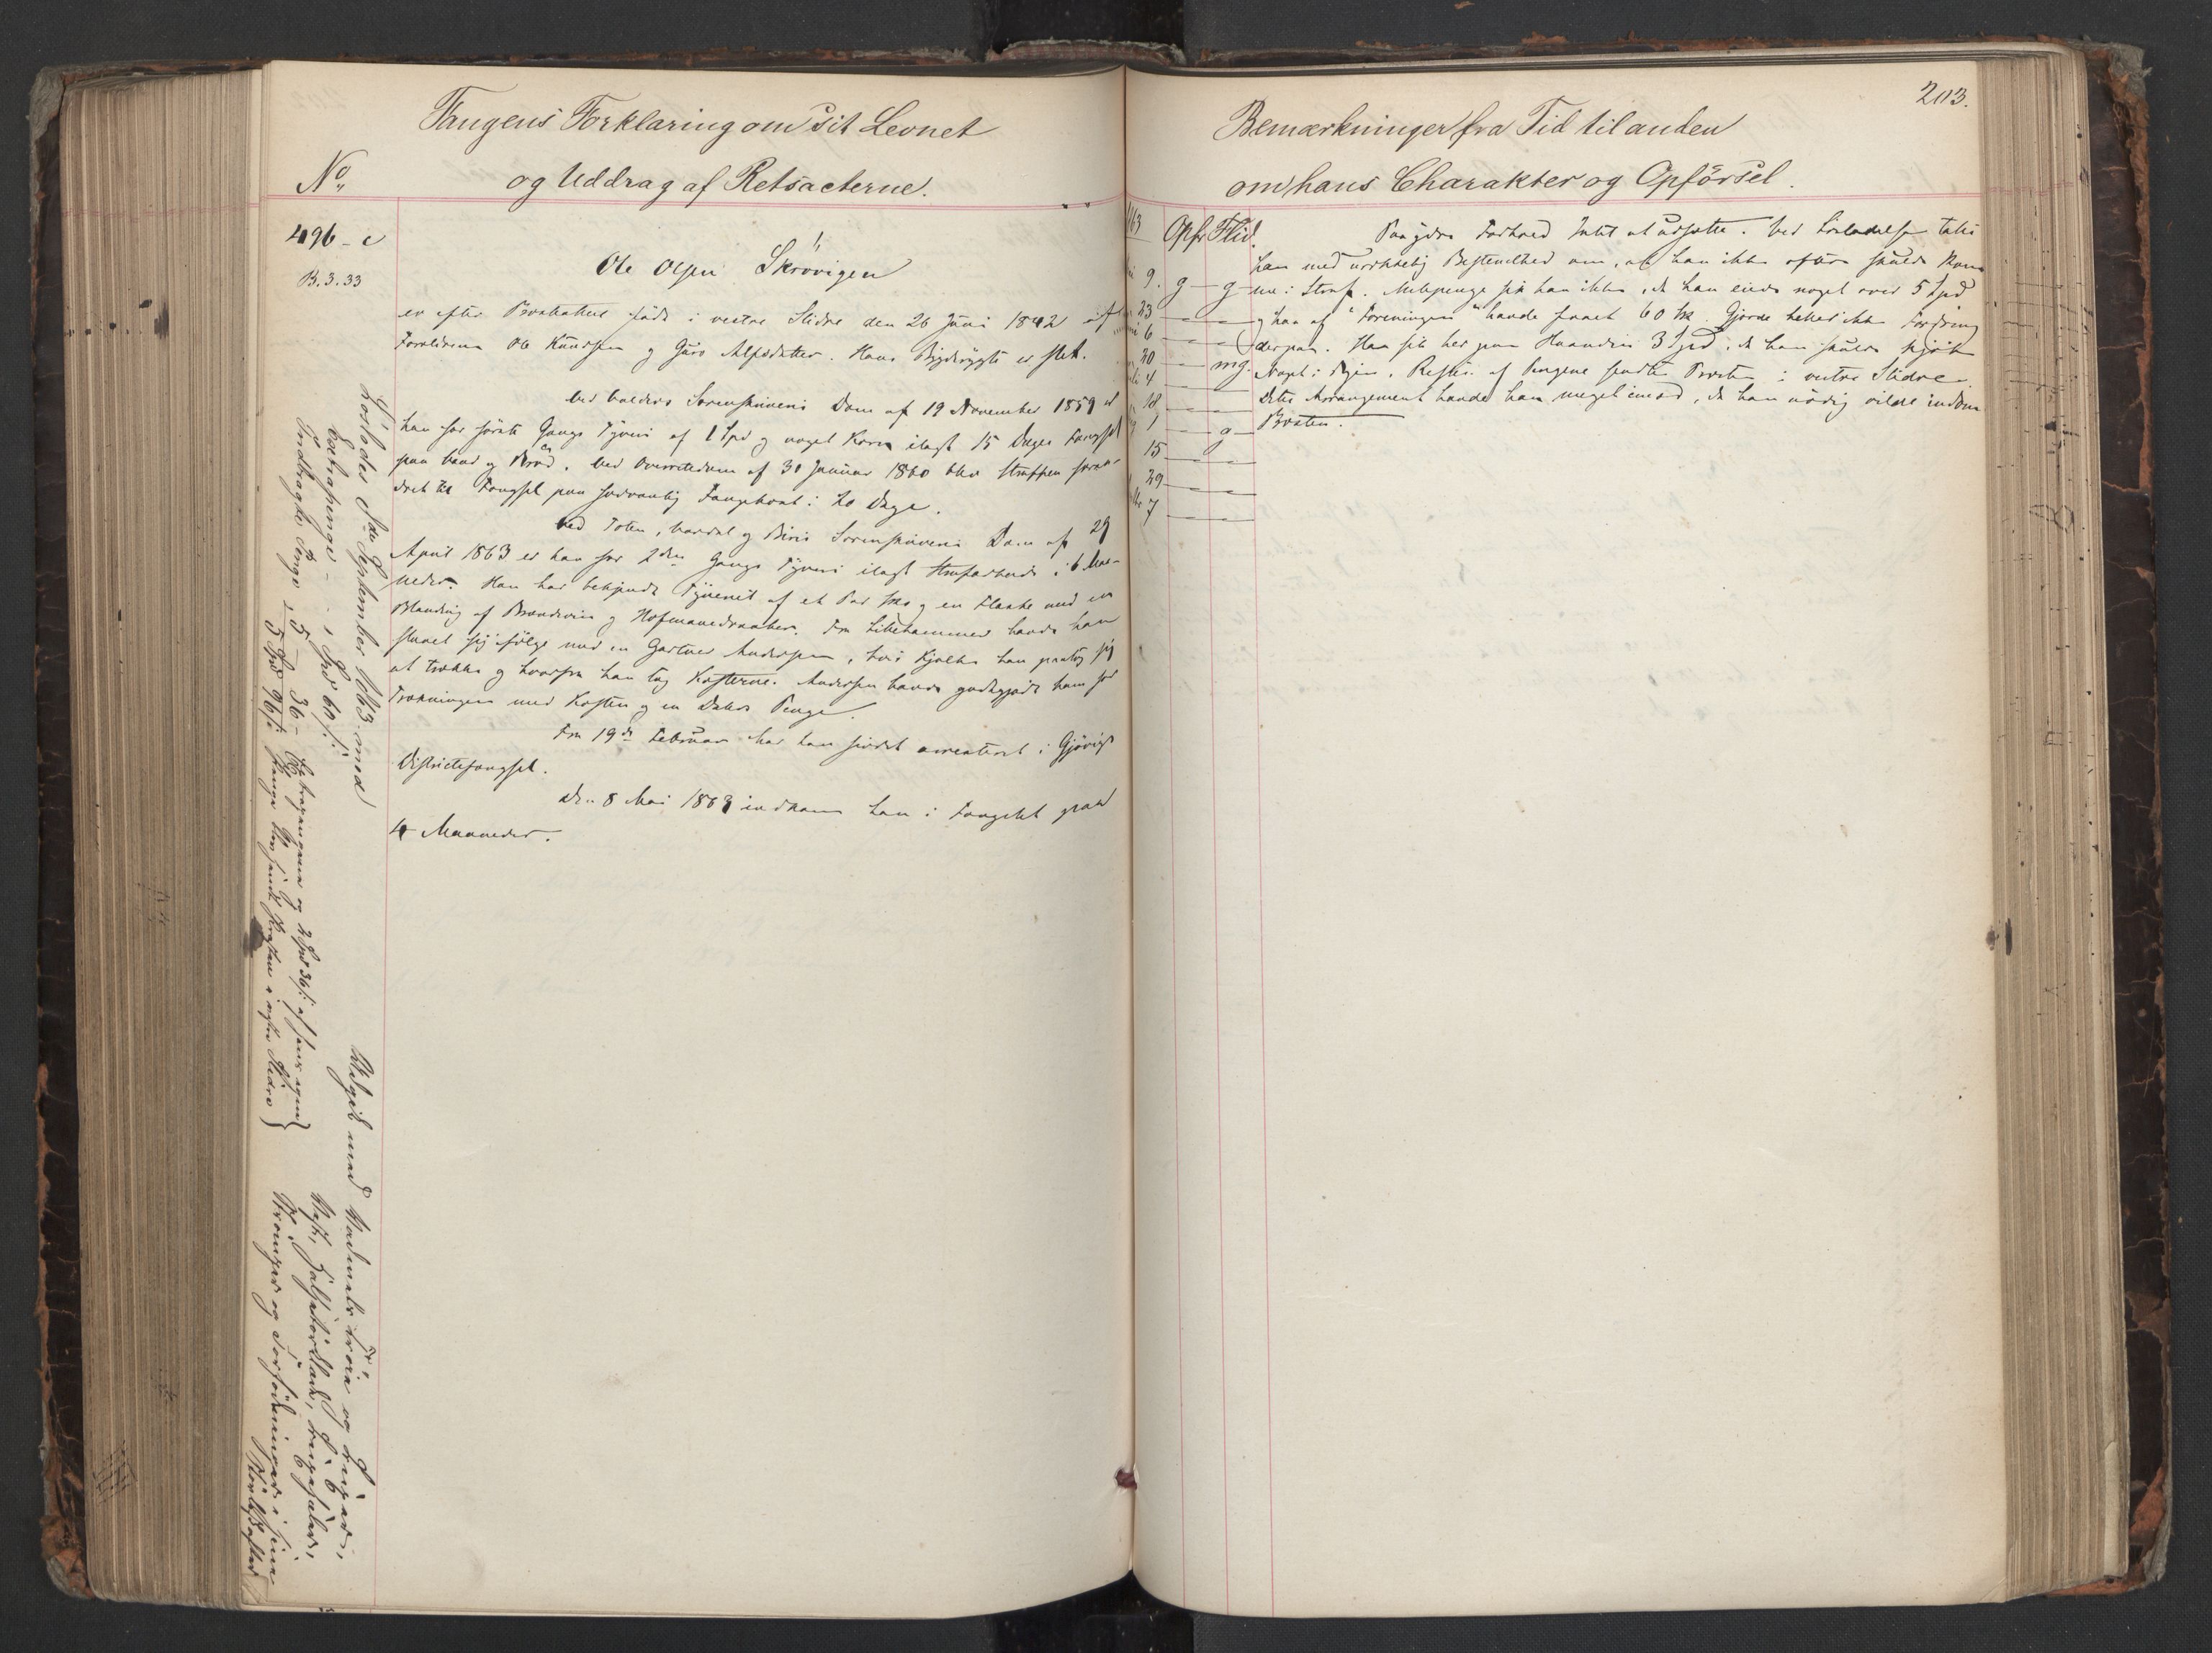 Fangens Forklaring om sit Levnet
og Uddrag af Retsacterne.
No
496 - c
B. 3. 33
Ole Olsen Skrøvigen
er efter Præsteattest født i vestre Slidre den 26 Juni 1842 af
Forældrene Ole Knudsen og Guro Alfsdatter. Hans Bygderygte er slet.
Ved Valders Sorenskriveris Dom af 19 November 1859 er
han for første Gangs Tyveri af 1 Spd og noget Korn ilagt 15 Dages Fængsel
paa Vand og Brød. Ved Overretsdom af 30 Januar 1860 blev Straffen foran-
dret til Fængsel paa sædvanlig Fangekost i 20 Dage.
Ved Toten, Vardal og Biris Sorenskriveris Dom af 29
April 1863 er han for 2den Gangs Tyveri ilagt Strafarbeide i 6 Maa-
neder. Han har bekjendt Tyveriet af et Par og en Flaske med en
Blanding af Brændeviin og Hofmansdraaber. Fra Lillehammer havde han
slaaet sig i følge med en Gartner Andersen, hvis Kjælke han paatog sig
at trække og hvorfra han tog Kosterne. Andersen havde godtgjort ham for
Trækningen med Kosten og en Dalers Penge.
Fra 19de Februar har han siddet arresteret i Gjøvigs
Districtsfængsel.
Den 8 Mai 1863 indkom han i Fængslet paa
4 Maaneder.
Løslades 8de September 1863 med
Extrapenge - - Spd 60 s.
Indbragte Penge - 5 - 36 -
5 Spd 96 s.
Penge sendt Præsten i vestre Slidre
Udgik med Vadmels trøie og
Vest, Halstørklæde,
Strømper og
203.
Bemærkninger fra Tid til anden
om hans Charakter og Opførsel.
63
Opfr Flid.
9. g - g
23
6
20 mg.
4
18
1 g
15
29
7
Paa ydre Forhold Intet at udsætte. Ved Løsladelse talte
han med Bestemthed om, at han ikke oftere skulde kom-
me i Straf. Milepenge fik han ikke, da han eiede noget over 5 Spd
og han af "Foreningen" havde faaet 60 sk. Gjorde heller ikke Fordring
derpaa. Han fik her paa Haanden 3 Spd, da han skulde kjøbe
Noget i Byen. Resten af Pengene sendtes Præsten i vestre Slidre.
Dette Arrangement havde han meget imod, da han nødig vilde
Præsten.